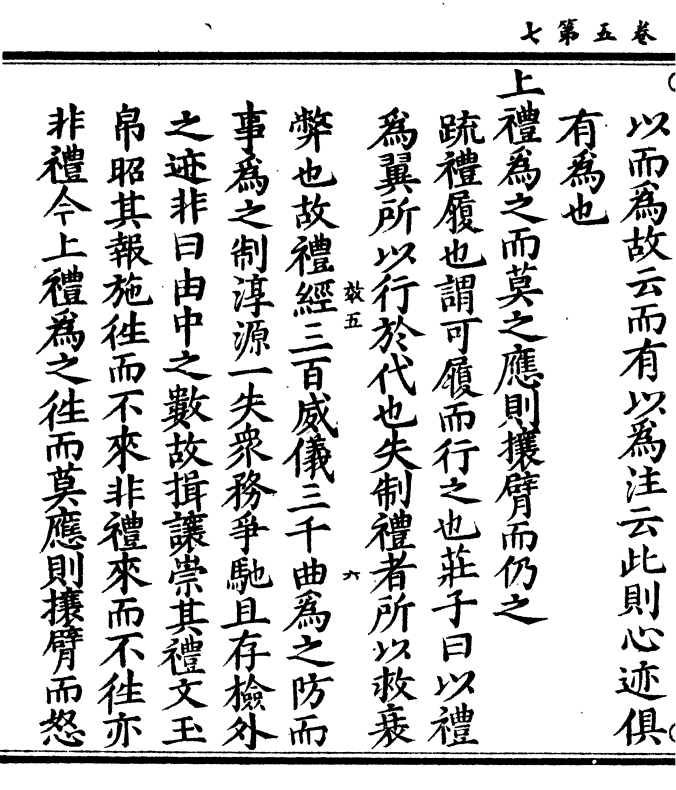 卷五第七
以而爲故云而有以爲注云此則心迹俱
有爲也
上禮爲之而莫之應則攘臂而仍之
䟽禮履也謂可履而行之也莊子曰以禮
爲翼所以行於代也夫制禮者所以救衰
效五
六
弊也故禮經三百威儀三千曲爲之防而
事爲之制淳源一失衆務爭馳且存檢外
之迹非曰由中之數故揖讓崇其禮文玉
帛昭其報施徃而不來非禮來而不徃亦
非禮今上禮爲之徃而莫應則攘臂而怒